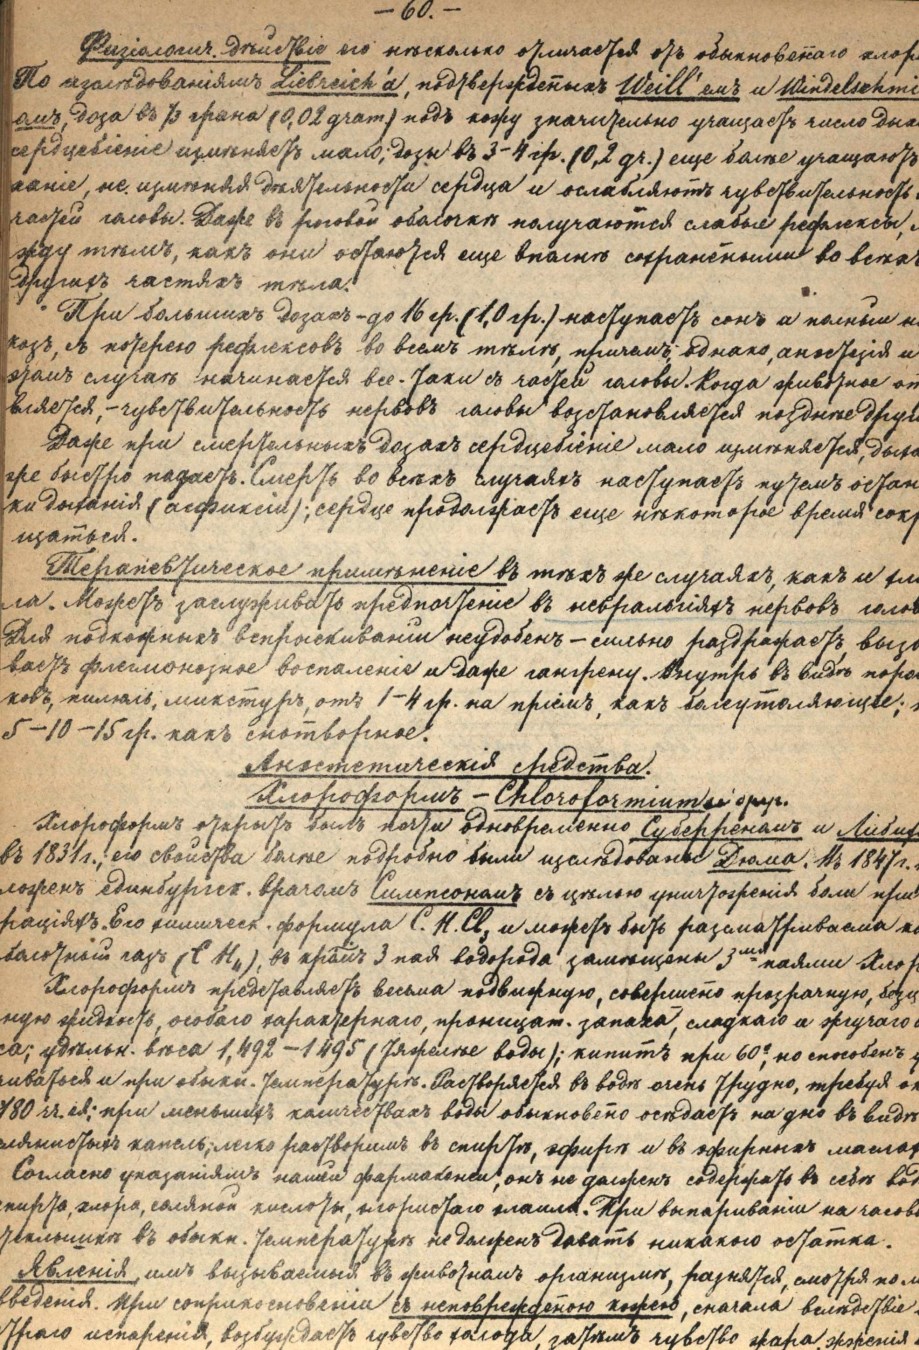 — 60. —
Физіологич. дѣйствіе его нѣсколько отличается отъ обыкновеннаго хлор
По изслѣдованіямъ Liebreich'a, подтвержденныхъ Weill'емъ и Windelschmi
омъ, доза въ ⅓ грана (0,02 gram) подъ кожу значительно учащаетъ число дых
сердцебіеніе измѣняетъ мало; дозы въ 3–4 гр. (0,2 gr.) еще болѣе учащаютъ
ханіе, не измѣняя дѣятельности сердца и ослабляютъ чувствительность
частей головы. Даже въ роговой оболочкѣ получаются слабые рефлексы,
жду тѣмъ, какъ они остаются еще вполнѣ сохраненными во всѣхъ
другихъ частяхъ тѣла.
При большихъ дозахъ – до 16 гр. (1,0 гр.) наступаетъ сонъ и полный на
козъ, съ потерею рефлексовъ во всемъ тѣлѣ, причемъ, однако, анестезія и
этомъ случаѣ начинается все-таки съ частей головы. Когда животное оп
вляется, – чувствительность нервовъ головы возстановляется позднѣе други
Даже при смертельныхъ дозахъ сердцебіеніе мало измѣняется, дыха
же быстро падаетъ. Смерть во всѣхъ случаяхъ наступаетъ путемъ остан
ки дыханія (асфиксіи); сердце продолжаетъ еще нѣкоторое время сокр
щаться.
Терапевтическое примѣненіе въ тѣхъ же случаяхъ, какъ и хло
ла. Можетъ заслуживать предпочтеніе въ невральгіяхъ нервовъ голов
Для подкожныхъ впрыскиваній неудобенъ – сильно раздражаетъ, вызы
ваетъ флегмонозное воспаленіе и даже гангрену. Внутрь въ видѣ порош
ковъ, пилюль, микстуръ, отъ 1–4 гр. на пріемъ, какъ болеутоляющее;
5–10–15 гр. какъ снотворное.
Анэстетическія средства.
Хлороформъ – Chloroformium
Хлороформъ открытъ былъ почти одновременно Суберреномъ и Либих
въ 1831 г.; его свойства болѣе подробно были изслѣдованы Дюма. Въ 1847 г.
ложенъ единбургск. врачомъ Симпсономъ съ цѣлью уничтоженія боли при
раціяхъ. Его химическ. формула C. H. Cl₃ и можетъ быть разсматриваема ка
болотный газъ (C H₄), въ кот. 3 пая водорода замѣщены 3мя паями хлор
Хлороформъ представляетъ весьма подвижную, совершенно прозрачную, безцв
ную жидкость, особаго характернаго, проницат. запаха, сладкаго и жгучаго
са; удѣльн. вѣса 1,492–1495 (тяжелѣе воды); кипитъ при 60°, но способенъ у
чиваться и при обыкн. температурѣ. Растворяется въ водѣ очень трудно, требуя ок
180 чч. ея; при меньшихъ количествахъ воды обыкновенно осѣдаетъ на дно въ видѣ
слянистыхъ капель; легко растворимъ въ спиртѣ, эфирѣ и въ эфирныхъ маслах
Согласно указаніямъ нашей фармакопеи, онъ не долженъ содержать въ себѣ вод
спирта, хлора, соляной кислоты, хлористаго елаила. При выпариваніи на часов
стеклышкѣ въ обыкн. температурѣ не долженъ давать никакого остатка.
Явленія, имъ вызываемыя въ животномъ организмѣ, разнятся, смотря по м
введенія. При соприкосновеніи съ неповрежденною кожею, сначала вслѣдствіе
страго испаренія, возбуждаетъ чувство холода, затѣмъ чувство жара, жженія